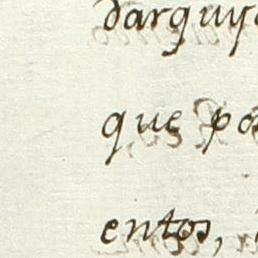 darquys
que pos
entos,